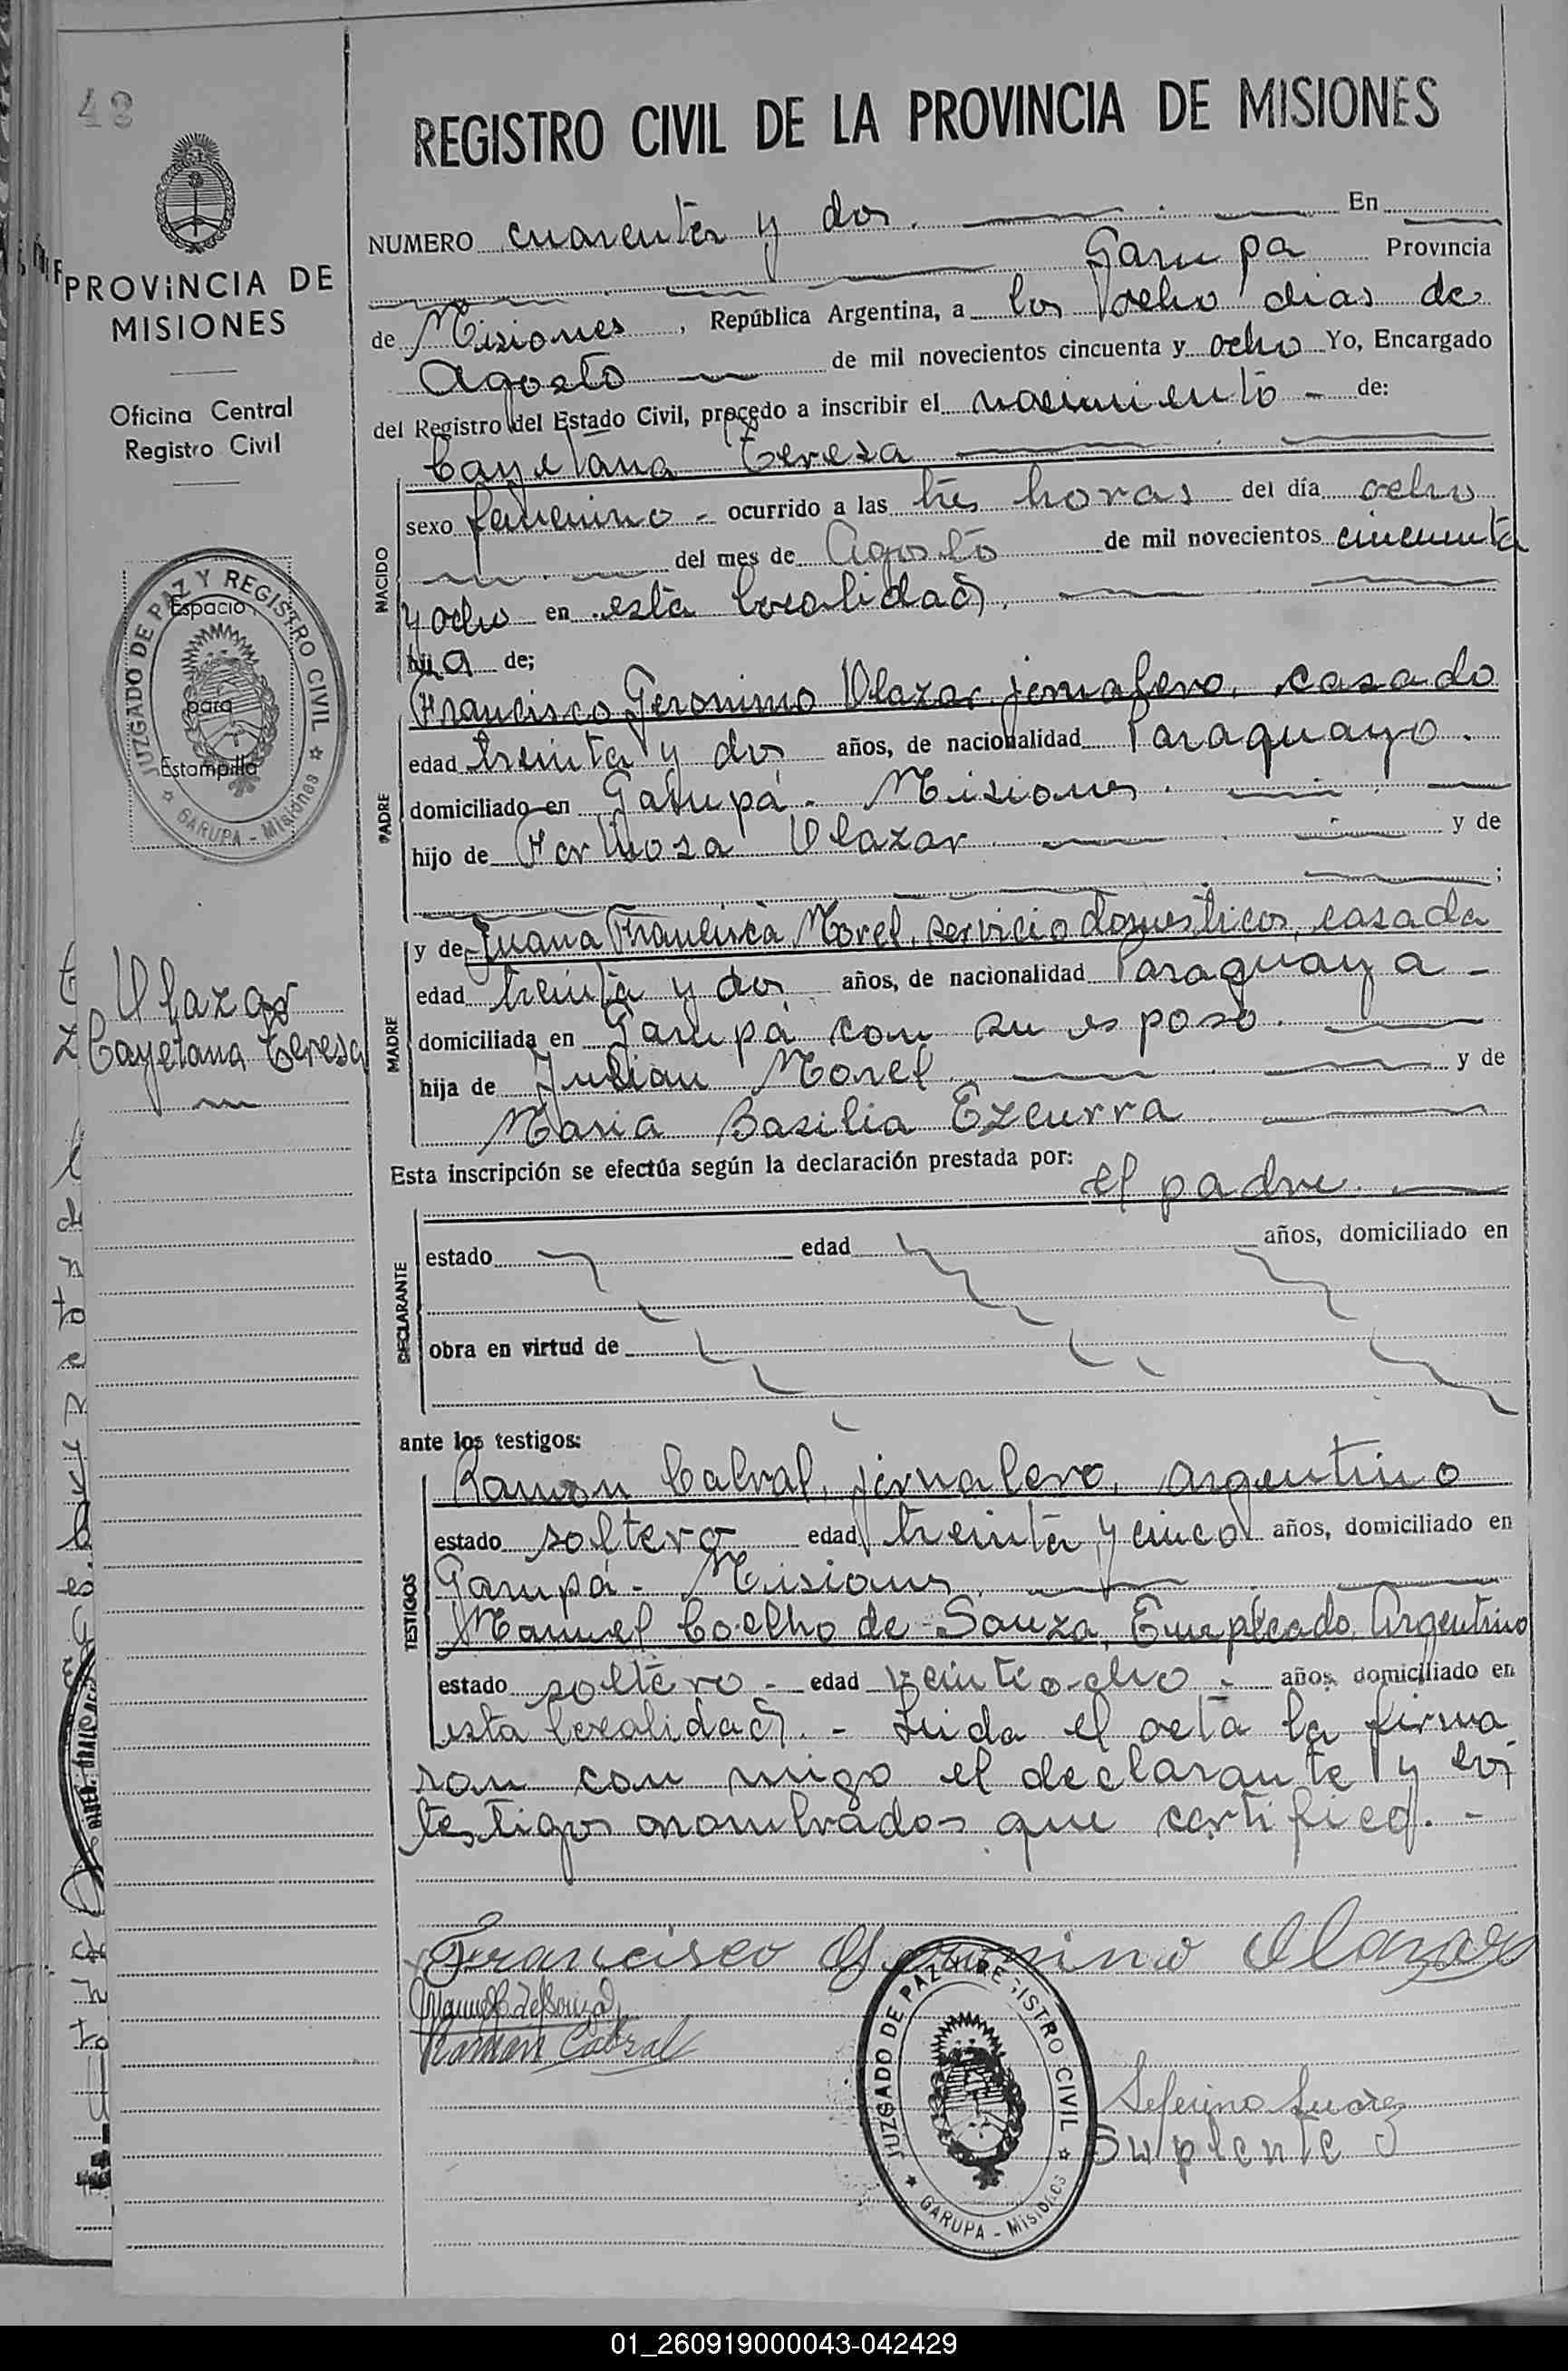 42
REGISTRO CIVIL DE LA PROVINCIA DE MISIONES
PROVINCIA DE
MISIONES
Oficina Central
Registro Civil
JUZGADO DE PAZ Y REGISTRO CIVIL
Espacio
para
Estampilla
GARUPA - Misiones
Olazar
Cayetana Teresa
NUMERO cuarenta y dos. En
Garupa Provincia
de Misiones, República Argentina, a los ocho dias de
Agosto de mil novecientos cincuenta y ocho Yo, Encargado
del Registro del Estado Civil, procedo a inscribir el nacimiento - de:
Cayetana Teresa
NACIDO
sexo femenino - ocurrido a las tres horas del día ocho
del mes de Agosto de mil novecientos cincuenta
y ocho en esta localidad.
hija de;
PADRE
Francisco Geronimo Olazar, jornalero, casado
edad treinta y dos años, de nacionalidad Paraguayo.
domiciliado en Garupá - Misiones.
hijo de Fermosa Olazar y de
;
MADRE
y de Juana Francisca Morel, servicio domesticos, casada
edad treinta y dos años, de nacionalidad Paraguaya -
domiciliada en Garupá con su esposo.
hija de Julian Morel y de
Maria Basilia Ezcurra
Esta inscripción se efectúa según la declaración prestada por:
el padre.
DECLARANTE
estado edad años, domiciliado en
obra en virtud de
ante los testigos:
TESTIGOS
Ramon Cabral, jornalero, argentino
estado soltero edad treinta y cinco años, domiciliado en
Garupá - Misiones.
Manuel Coelho de Souza, Empleado, Argentino
estado soltero - edad veintiocho - años, domiciliado en
esta localidad. - Leida el acta la firma
ron con migo el declarante y los
testigos nombrados que certifico. -
Francisco Geronimo Olazar
Manuel C de Souza
Ramon Cabral
JUZGADO DE PAZ Y REGISTRO CIVIL
GARUPA - Misiones
Seferino Suarez
Suplente
01_260919000043-042429